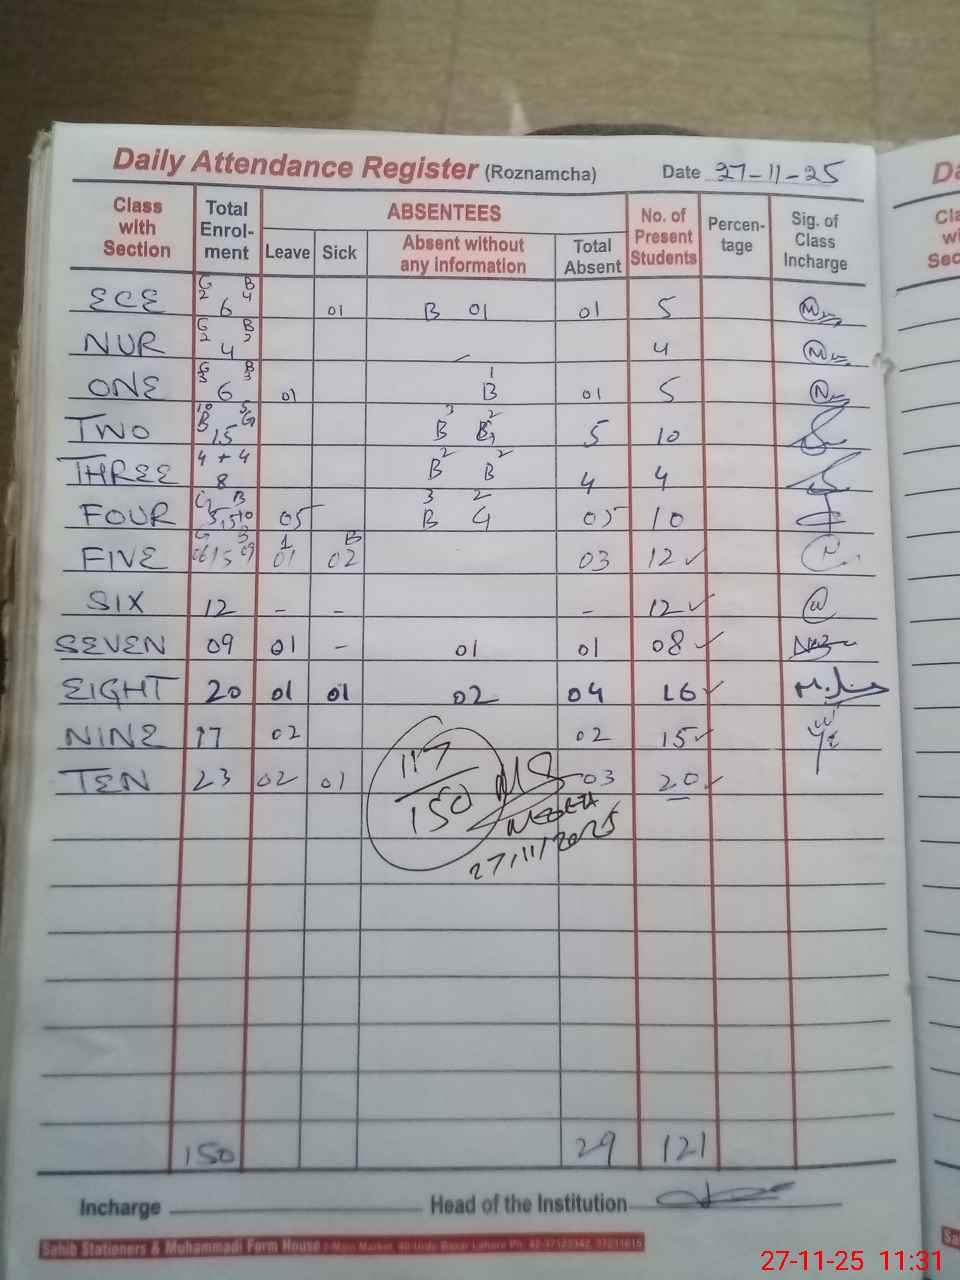 Daily Attendance Register (Roznamcha) Date 27-11-25
Class with Section Total Enrol-ment ABSENTEES No. of Present Students Percen-tage Sig. of Class Incharge
Leave Sick Absent without any information Total Absent
G B
2 4
ECE 6 01 B 01 01 5
G B
2 2
NUR 4 4
G B
3 3 1
ONE 6 01 B 01 5
10 5 3 2
B G
TWO 15 B G 5 10
4 + 4 2 2
THREE 8 B B 4 4
G B 3 2
FOUR 5 10 15 05 B G 05 10
G B 1 B
FIVE 06 15 09 01 02 03 12 ✓
SIX 12 - - - 12 ✓
SEVEN 09 01 - 01 01 08 ✓
EIGHT 20 01 01 02 04 16 ✓
NINE 17 02 02 15 ✓
TEN 23 02 01 03 20 ✓
117
150
27/11/2025
150 29 121
Incharge Head of the Institution
Sahib Stationers & Muhammadi Form House 2-Main Market, 40-Urdu Bazar Lahore Ph:
Da
Cla
wi
Sec
Sa
27-11-25 11:31